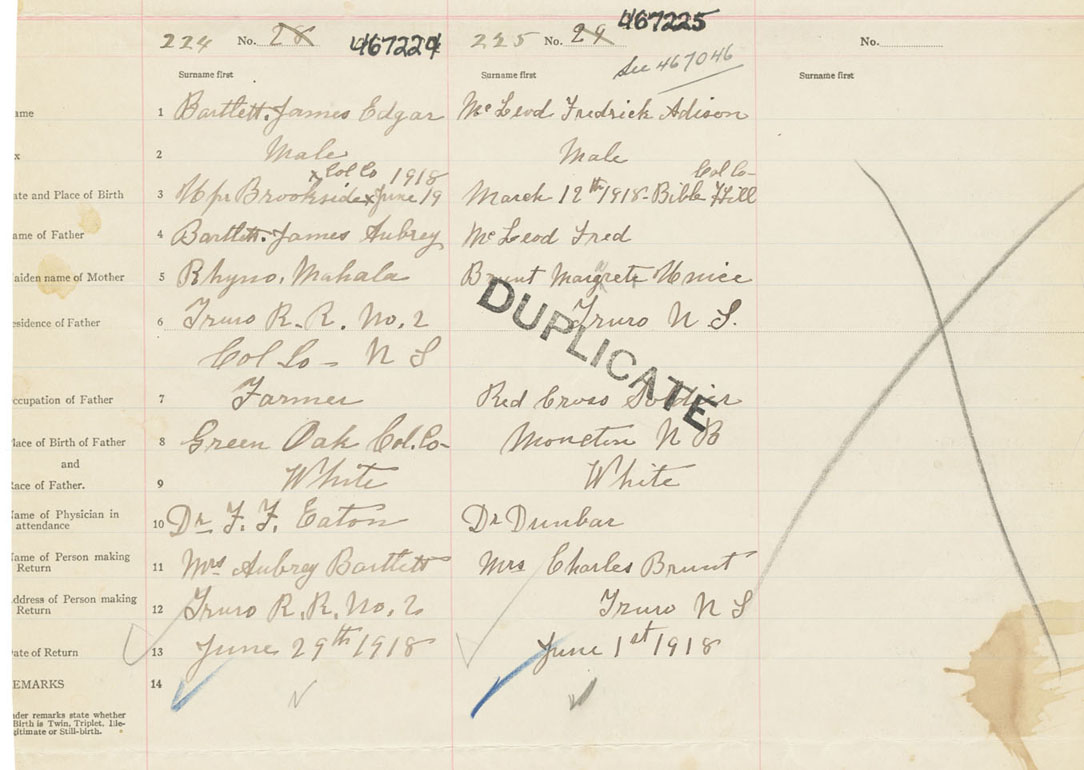 224 No. 28 467224 225 No. 29 467225 No.
See 467046
Surname first Surname first Surname first
ame 1 Bartlett. James Edgar McLeod Fredrick Adison
x 2 Male Male
x Col Co 1918 Col Co-
ate and Place of Birth 3 Upr Brookside x June 19 March 12th 1918 - Bible Hill
ame of Father 4 Bartlett. James Aubrey McLeod Fred
aiden name of Mother 5 Rhyno, Mahala Brunt Margrete Unice
esidence of Father 6 Truro R. R. No. 2 Truro N S.
Col Co - N S
DUPLICATE
ccupation of Father 7 Farmer Red Cross Soldier
lace of Birth of Father 8 Green Oak Col. Co- Moncton N B
and
ace of Father. 9 White White
ame of Physician in
attendance 10 Dr F. F. Eaton Dr Dunbar
ame of Person making
Return 11 Mrs Aubrey Bartlett Mrs Charles Brunt
ddress of Person making
Return 12 Truro R. R. No. 2 Truro N S
ate of Return 13 June 29th 1918 June 1st 1918
EMARKS 14
nder remarks state whether
Birth is Twin, Triplet, Ille-
gitimate or Still-birth.